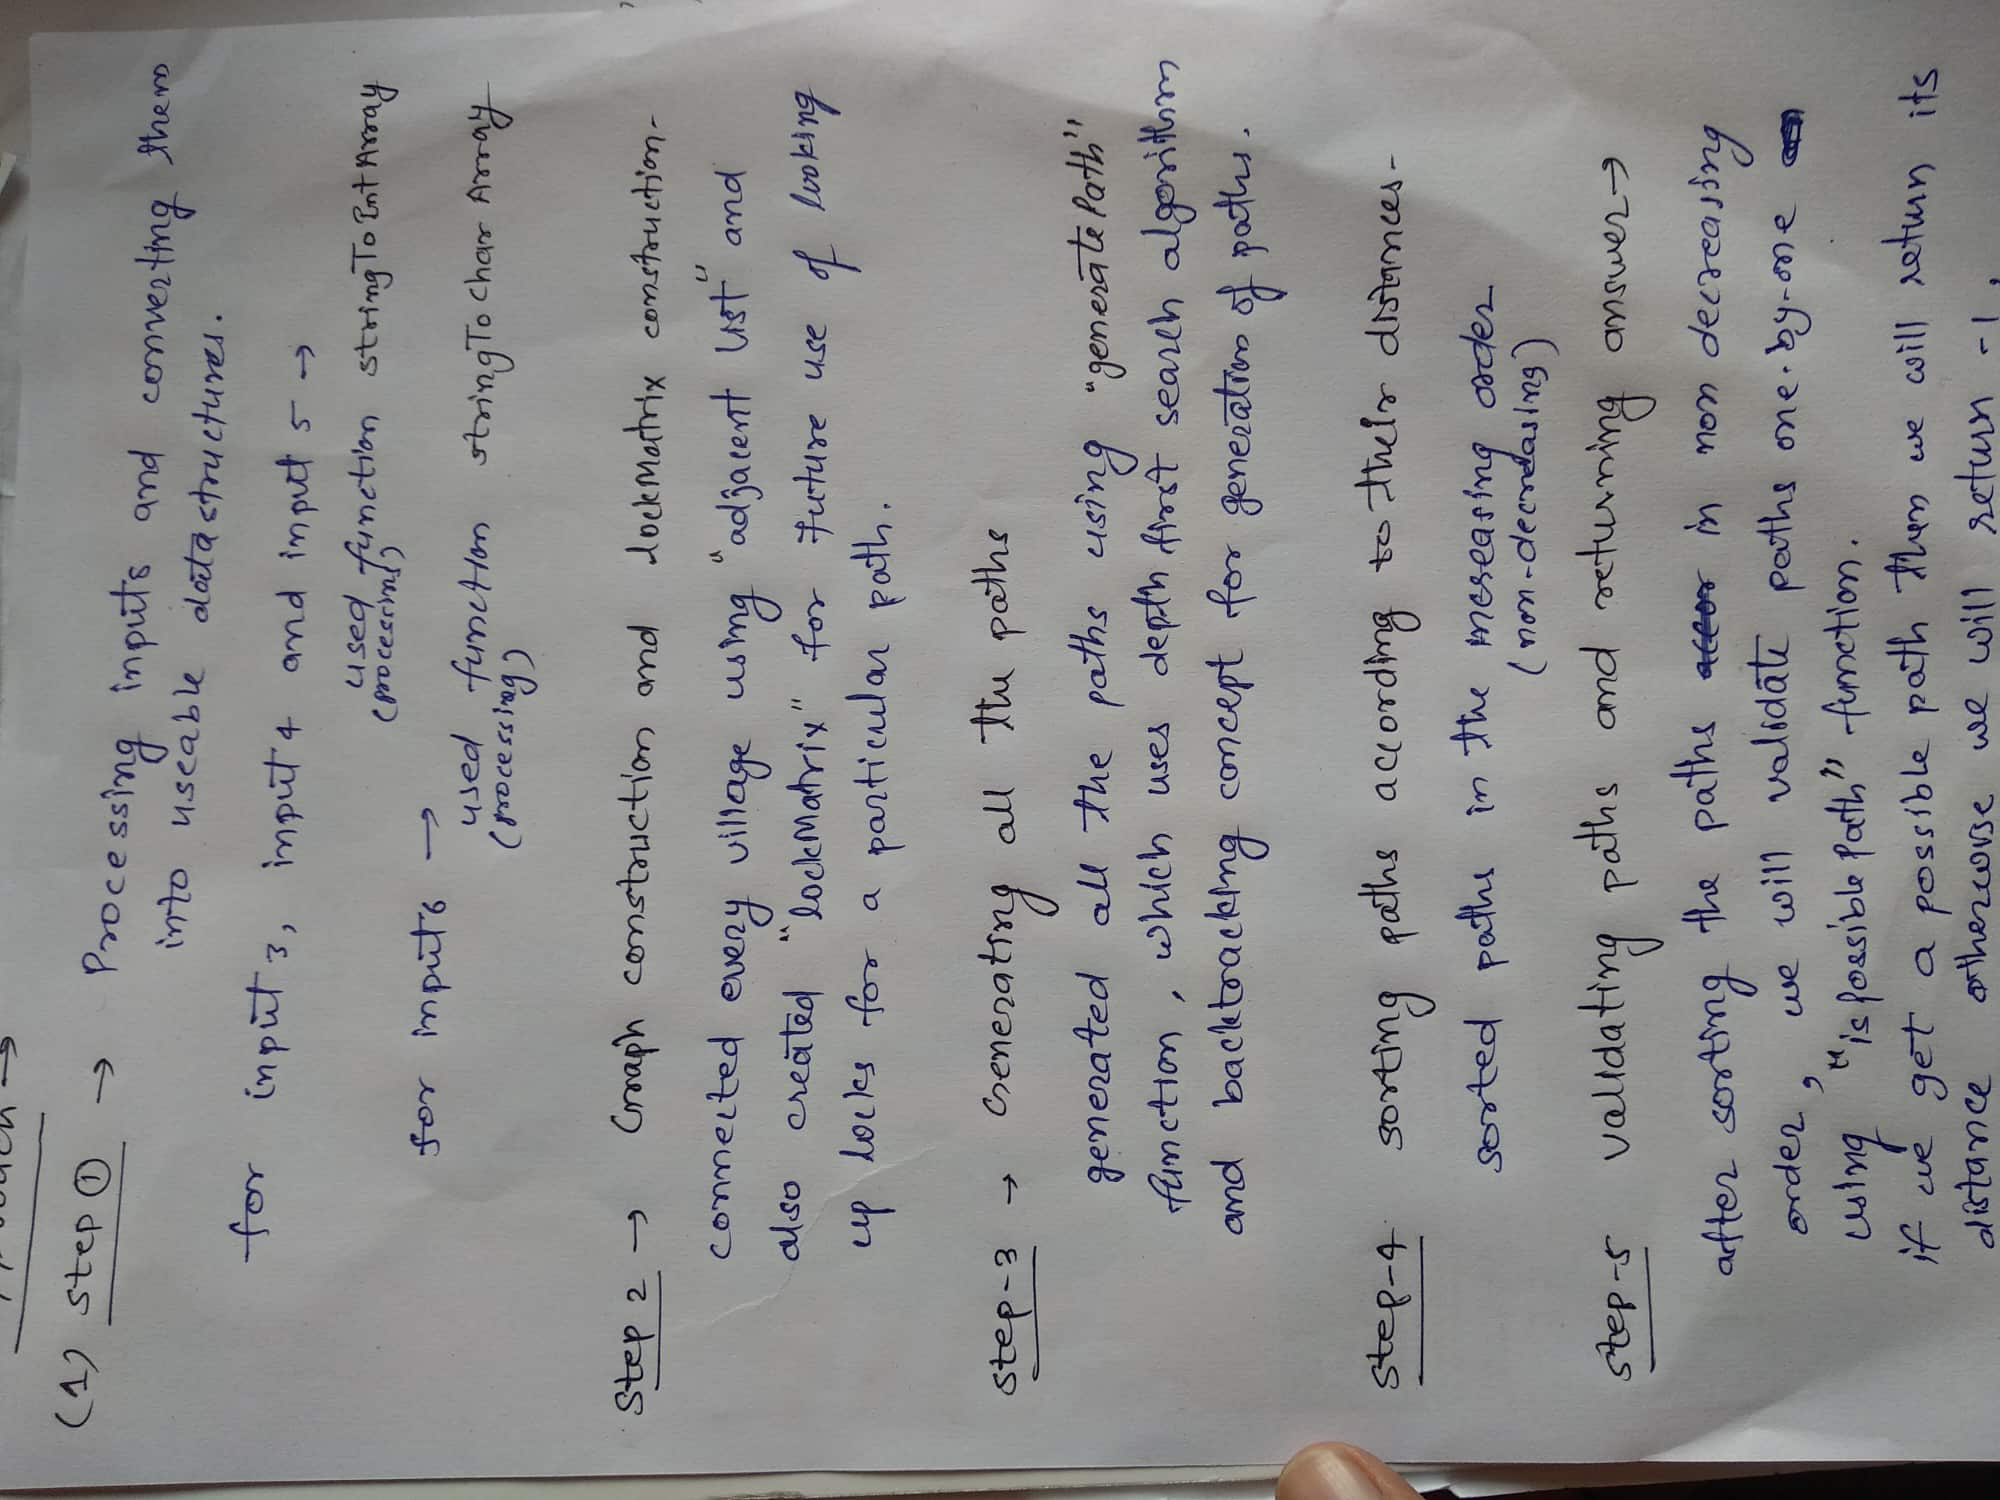 (1) Step ① → Processing inputs and converting them
into useable datastructures.
for input 3, input 4 and input 5 →
used function stringToIntArray
(processing)
for input 6 →
used function stringTo char Array
(processing)
Step 2 → Graph construction and lockMatrix construction-
connected every village using "adjacent list" and
also created "lockMatrix" for future use of looking
up locks for a particular path.
Step-3 → Generating all the paths
generated all the paths using "generatePath"
function, which uses depth first search algorithm
and backtracking concept for generation of paths.
Step-4 sorting paths according to their distances-
sorted paths in the increasing order
(non-decreasing)
Step-5 validating paths and returning answer →
after sorting the paths in non decreasing
order, we will validate paths one-by-one
using "is possible path" function.
if we get a possible path then we will return its
distance otherwise we will return -1.